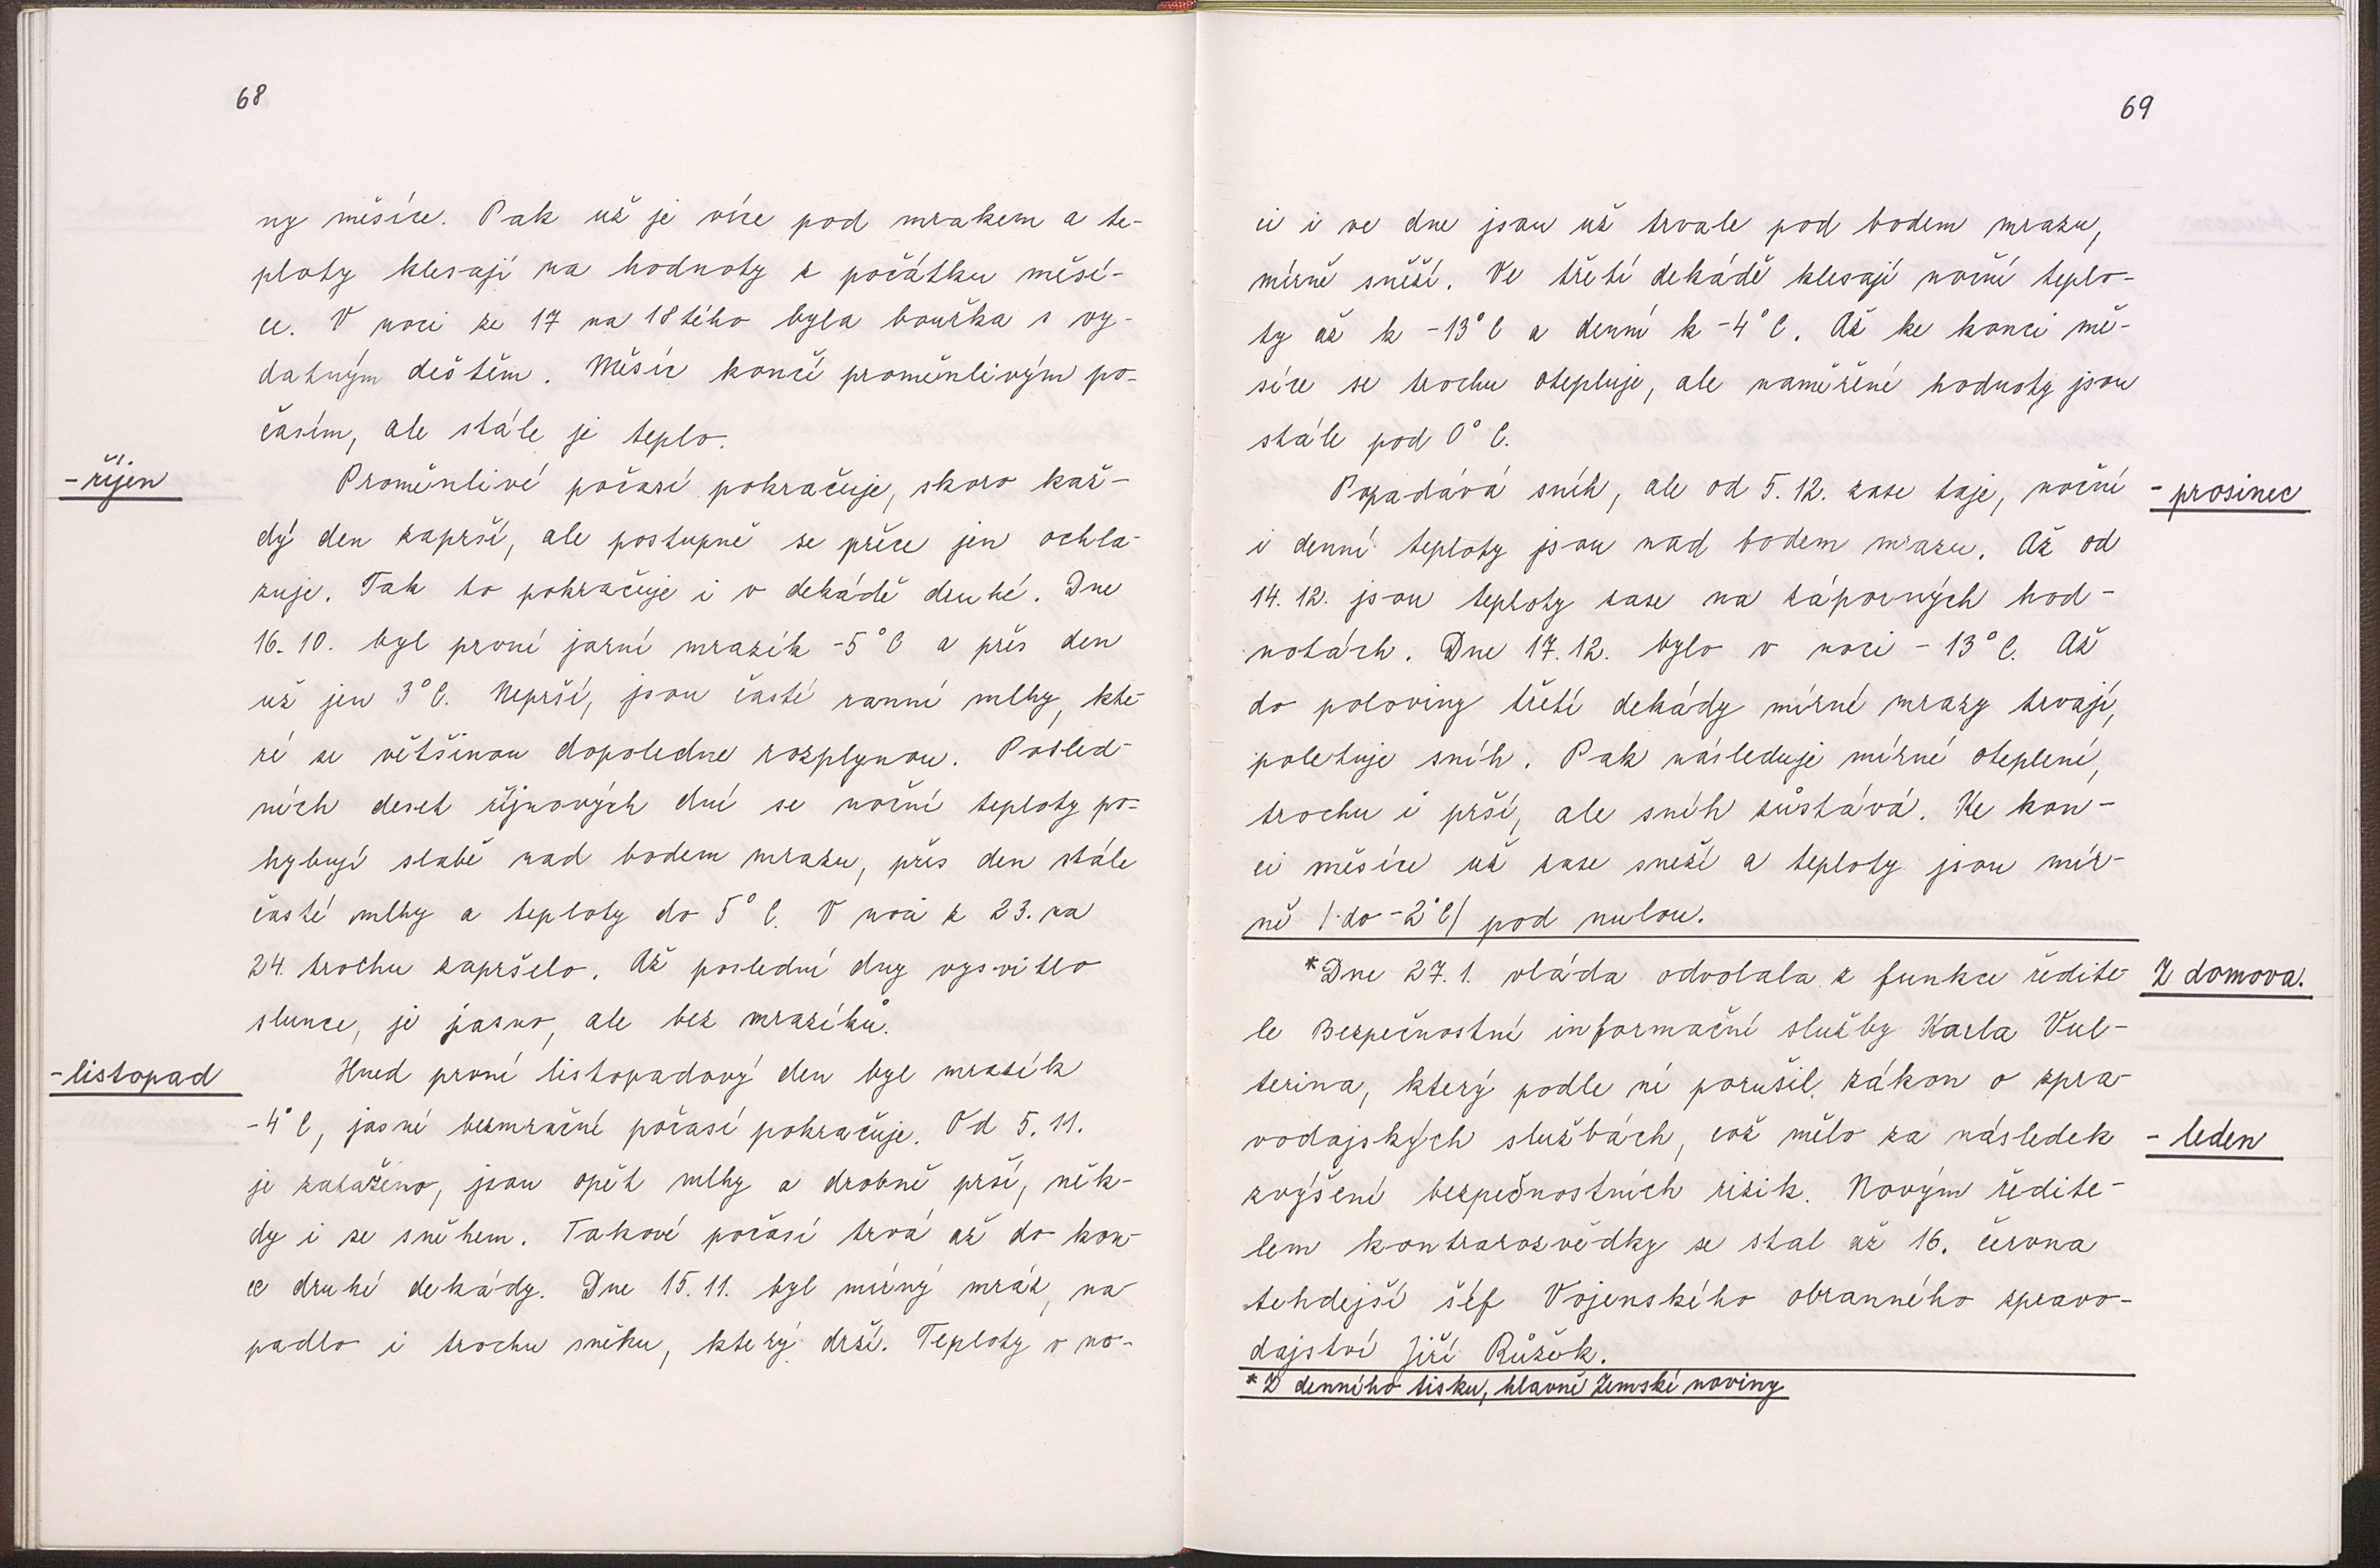 68
ny měsíce. Pak už je více pod mrakem a te-
ploty klesají na hodnoty z počátku měsí-
ce. V noci ze 17 na 18tého byla bouřka s vy-
datným deštěm. Měsíc končí proměnlivým po-
časím, ale stále je teplo.
- říjen
Proměnlivé počasí pokračuje, skoro kaž-
dý den zaprší, ale postupně se přece jen ochla-
zuje. Tak to pokračuje i v dekádě druhé. Dne
16. 10. byl první jarní mrazík -5°C a přes den
už jen 3°C. Neprší, jsou časté ranní mlhy, kte-
ré se většinou dopoledne rozplynou. Posled-
ních deset říjnových dní se noční teploty po-
hybují slabě nad bodem mrazu, přes den stále
časté mlhy a teploty do 5°C. V noci z 23. na
24. trochu zapršelo. Až poslední dny vysvitlo
slunce, je jasno, ale bez mrazíků.
- listopad
Hned první listopadový den byl mrazík
-4°C, jasné bezmračné počasí pokračuje. Od 5. 11.
je zataženo, jsou opět mlhy a drobně prší, něk-
dy i se sněhem. Takové počasí trvá až do kon-
ce druhé dekády. Dne 15. 11. byl mírný mráz, na
padlo i trochu sněhu, který drží. Teploty v no-
69
ci i ve dne jsou už trvale pod bodem mrazu,
mírně sněží. Ve třetí dekádě klesají noční teplo-
ty až k -13°C a denní k -4°C. Až ke konci mě-
síce se trochu otepluje, ale naměřené hodnoty jsou
stále pod 0°C.
- prosinec
Popadává sníh, ale od 5. 12. zase taje, noční
i denní teploty jsou nad bodem mrazu. Až od
14. 12. jsou teploty zase na záporných hod-
notách. Dne 17. 12. bylo v noci - 13°C. Až
do poloviny třetí dekády mírné mrazy trvají,
poletuje sníh. Pak následuje mírné oteplení,
trochu i prší, ale sníh zůstává. Ke kon-
ci měsíce už zase sneží a teploty jsou mír-
ně /do -2°C/ pod nulou.
Z domova.
*Dne 27. 1. vláda odvolala z funkce ředite-
le Bezpečnostní informační služby Karla Vul-
terina, který podle ní porušil zákon o zpra-
vodajských službách, což mělo za následek
- leden
zvýšení bezpečnostních rizik. Novým ředite-
lem kontrarozvědky se stal až 16. června
tehdejší šéf Vojenského obranného zpravo-
dajství Jiří Růžek.
*Z denního tisku, hlavně Zemské noviny